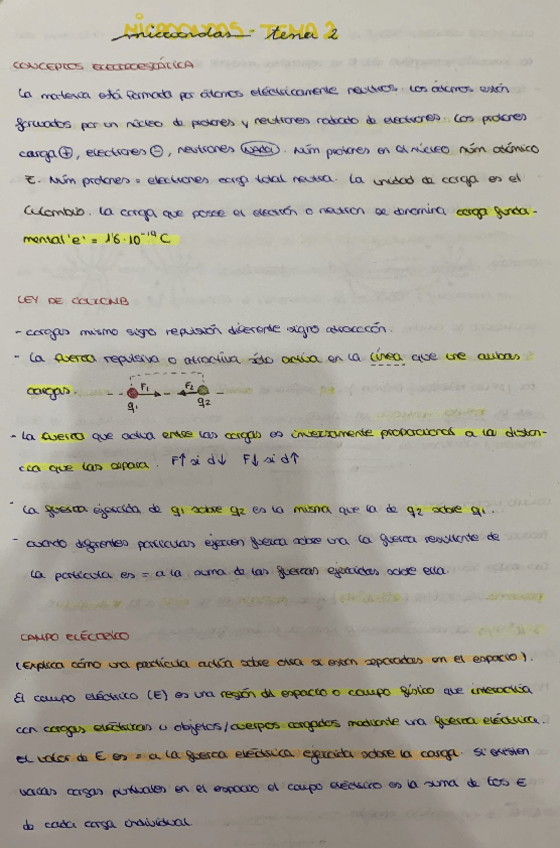 MICROONDAS - TEMA 2
microondas - tema 2
CONCEPTOS ELECTROESTÁTICA
La materia está formada por átomos eléctricamente neutros. Los átomos están
formados por un núcleo de protones y neutrones rodeado de electrones. Los protones
carga +, electrones -, neutrones nada. Núm protones en el núcleo núm atómico
Z. Núm protones = electrones carga total neutra. La unidad de carga es el
Culombio. La carga que posee el electrón o neutron se denomina carga funda-
mental 'e' = 1'6·10⁻¹⁹ C
LEY DE COULOMB
- cargas mismo signo repulsión diferente signo atracción.
- La fuerza repulsiva o atractiva sólo actúa en la línea que une ambas
cargas. F1 F2
q1 q2
- La fuerza que actúa entre las cargas es inversamente proporcional a la distan-
cia que las separa. F↑ si d↓ F↓ si d↑
- La fuerza ejercida de q1 sobre q2 es la misma que la de q2 sobre q1.
- cuando diferentes partículas ejercen fuerza sobre una la fuerza resultante de
la partícula es = a la suma de las fuerzas ejercidas sobre ella.
CAMPO ELÉCTRICO
(Explica cómo una partícula actúa sobre otra si estan separadas en el espacio).
El campo eléctrico (E) es una región del espacio o campo físico que interactúa
con cargas eléctricas u objetos/cuerpos cargados mediante una fuerza eléctrica.
el valor de E es = a la fuerza eléctrica ejercida sobre la carga. Si existen
varias cargas puntuales en el espacio el campo eléctrico es la suma de los E
de cada carga individual.